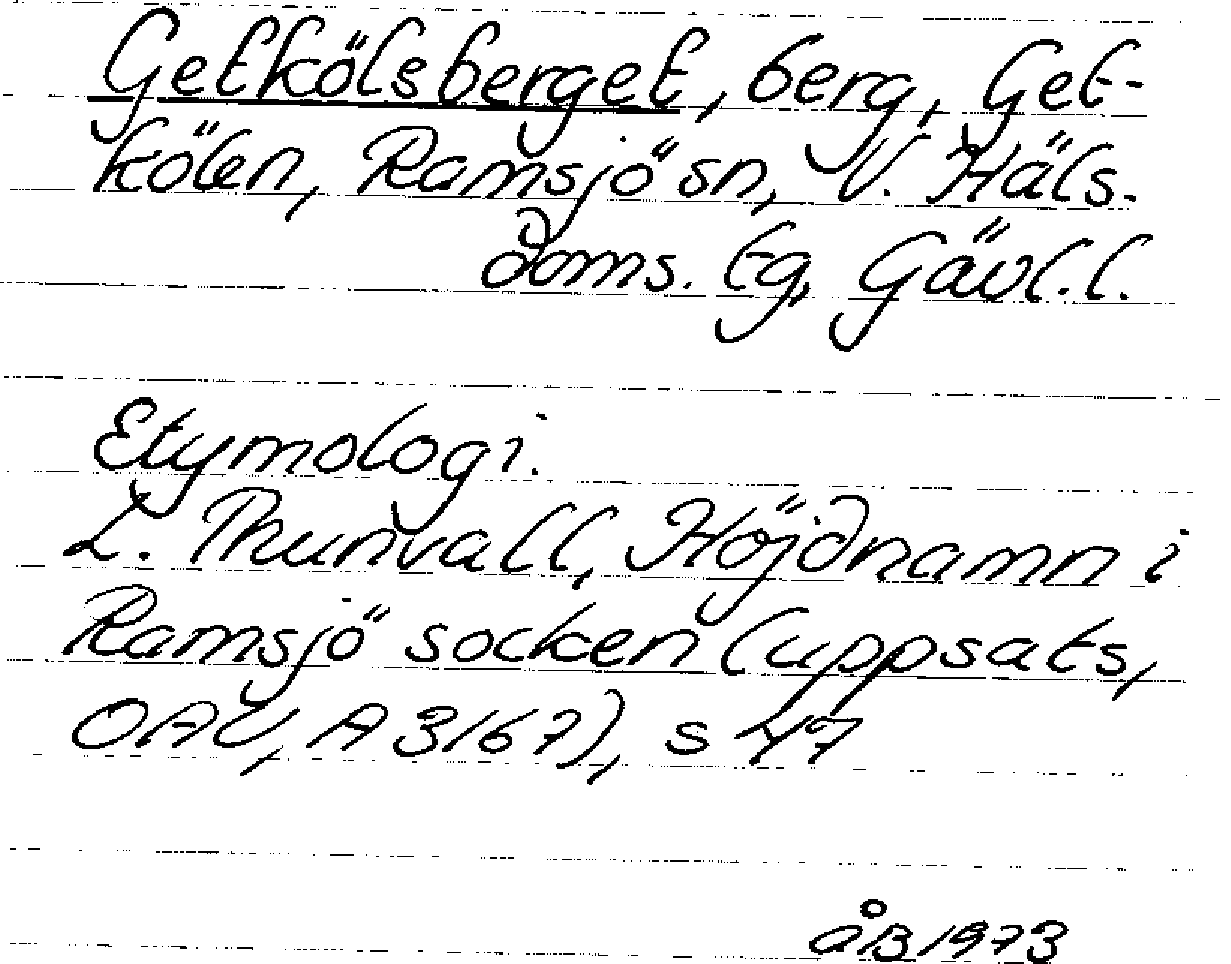 Getkölsberget, berg, Get-
kölen, Ramsjö sn, V. Häls.
Doms. tg, Gävl. l.
Etymologi.
L. Thunvall, Höjdnamn i
Ramsjö socken (uppsats,
OAU, A 3167), s 47
åB 1973